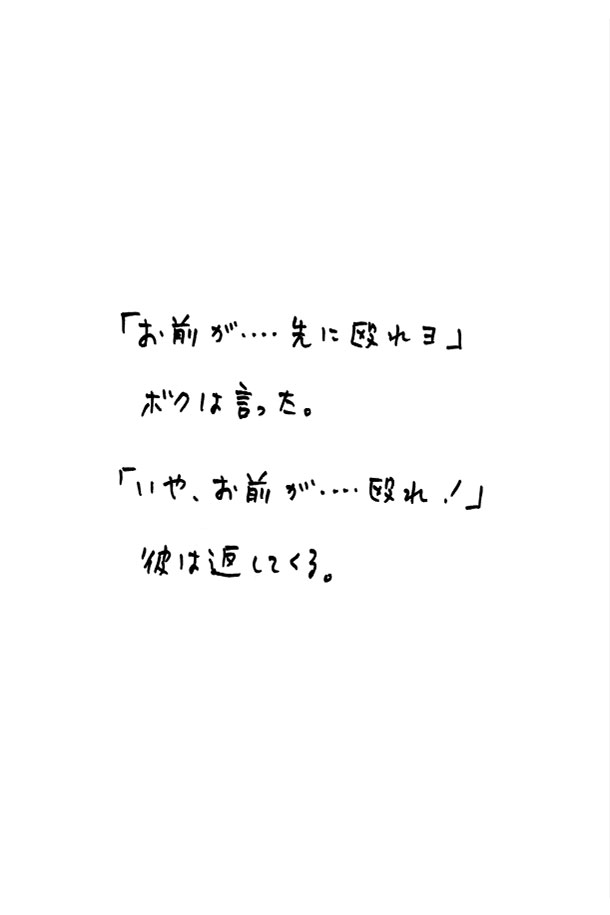 「お前が‥‥先に殴れヨ」
ボクは言った。
「いや、お前が‥‥殴れ！」
彼は返してくる。